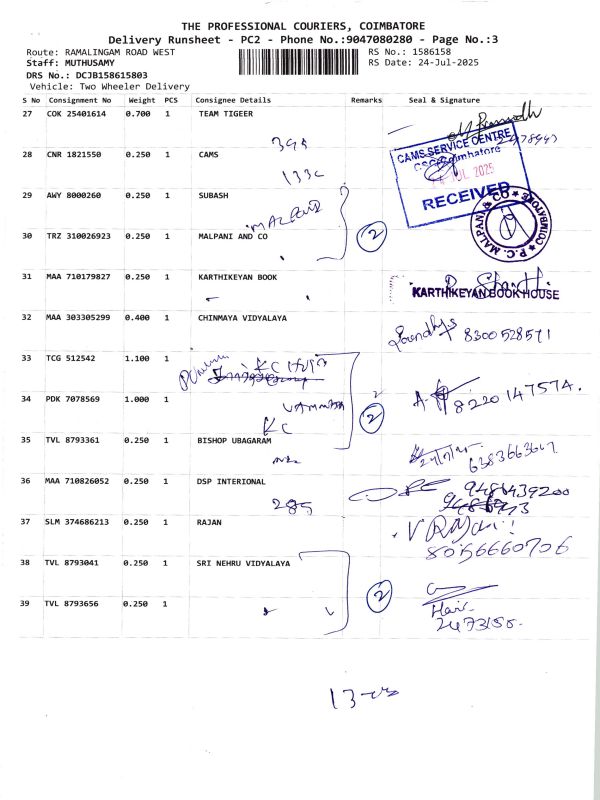 THE PROFESSIONAL COURIERS, COIMBATORE
Delivery Runsheet - PC2 - Phone No.:9047080280 - Page No.:3
Route: RAMALINGAM ROAD WEST RS No.: 1586158
Staff: MUTHUSAMY RS Date: 24-Jul-2025
DRS No.: DCJB158615803
Vehicle: Two Wheeler Delivery
S No Consignment No Weight PCS Consignee Details Remarks Seal & Signature
27 COK 25401614 0.700 1 TEAM TIGEER
395
28 CNR 1821550 0.250 1 CAMS
CAMS SERVICE CENTRE
CSC Coimbatore
JUL 2025
RECEIVED
29 AWY 8000260 0.250 1 SUBASH
MALPANI
P.C. MALPANI & CO
COIMBATORE
30 TRZ 310026923 0.250 1 MALPANI AND CO
2
31 MAA 710179827 0.250 1 KARTHIKEYAN BOOK
KARTHIKEYAN BOOK HOUSE
32 MAA 303305299 0.400 1 CHINMAYA VIDYALAYA
8300528571
33 TCG 512542 1.100 1
KC
34 PDK 7078569 1.000 1
2
8220147574.
KC
35 TVL 8793361 0.250 1 BISHOP UBAGARAM
6383663667
36 MAA 710826052 0.250 1 DSP INTERIONAL
285
9486439200
37 SLM 374686213 0.250 1 RAJAN
V Rajan
8056660706
38 TVL 8793041 0.250 1 SRI NEHRU VIDYALAYA
2
39 TVL 8793656 0.250 1
Hari
2473150
13